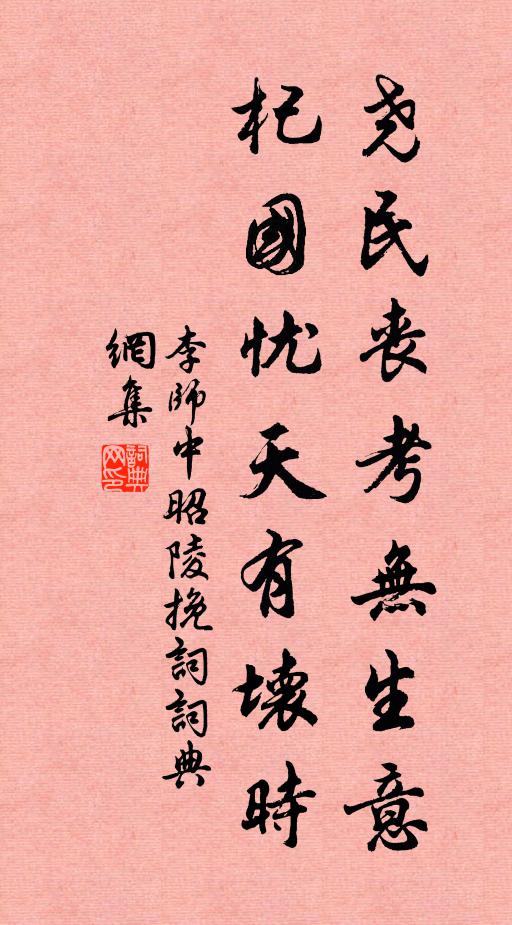 尧民丧考無生意
杞國忧天有壊時
李師中昭陵挽詞詞典
網集
詞典网印